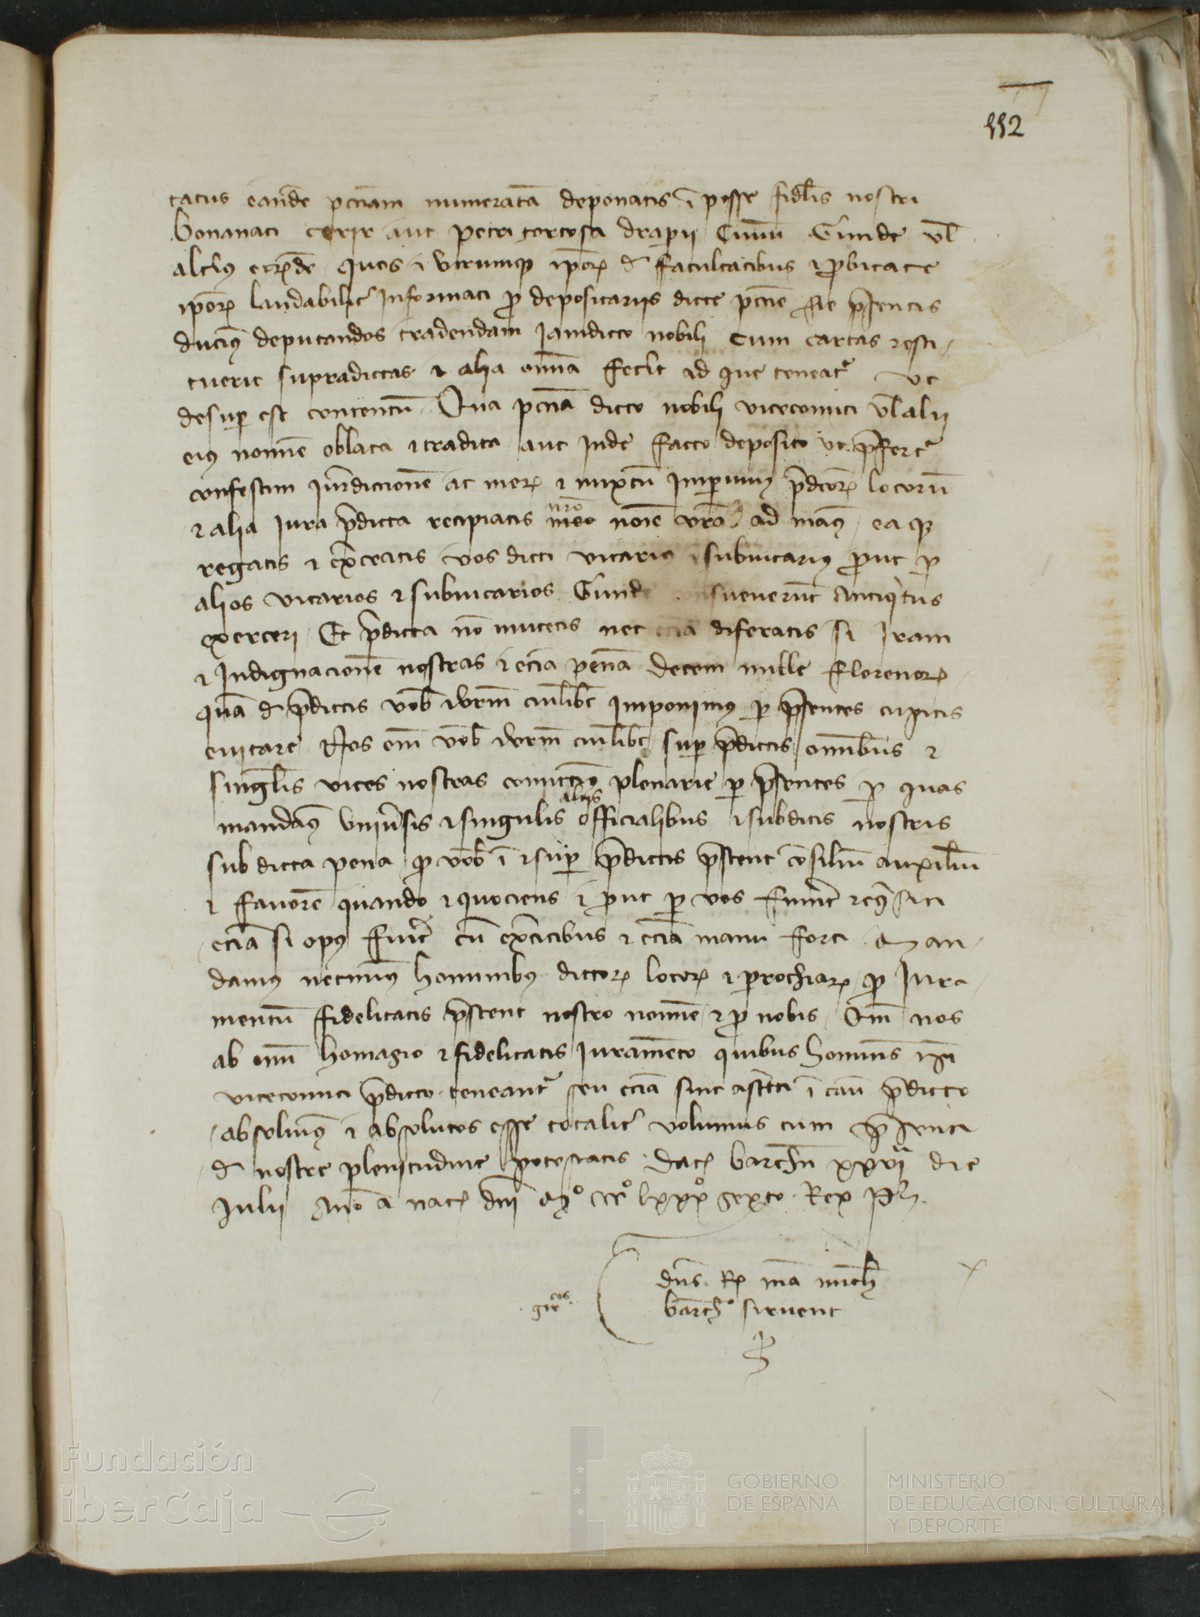 112
tatus eande pecuniam numeratã deponatis ĩ posse fidelis nostri
bonanati aut petri tortosa draperii Civium Gunde vel
alterius eorunde Quos & utrumque ipsorum de facultatibus & probitate
ipsorum laudabiliter Informati pro depositariis dicte pecunie sic presentis
ducimus deputandos tradendam Jamdicto nobili Cum cartas resti
tuerit supradictas & alia omnia fecerit ad que teneatur ut
desuper est contentum Qua pecunia dicto nobili vicecomiti vel alii
eius nomine oblata & tradita aut Inde facto deposito ut prefertur
confestim Jurisdictionem ac merum & mixtum Imperium predictorum locorum
& alia Jura predicta recipiatis nostro nomine ad manus eaque
regatis & exerceatis vos dicti vicarius & subvicarius prout per
alios vicarios & subvicarios consueverunt antiquitus
exerceri Et predicta non mutetis nec eciam diferatis si Iram
& Indignacionem nostras & eciam penam decem mille florenorum
quam de predictis vobis & vestrum cuilibet Imponimus per presentes cupitis
evitare Nos enim vobis & vestrum cuilibet super predictis omnibus &
singulis vices nostras comittimus plenarie per presentes per quas
mandamus universis & singulis aliis officialibus & subditis nostris
sub dicta pena quod vobis in & super predictis prestent consilium auxilium
& favorem quando & quociens & prout per vos fuerint requisiti
eciam si opus fuerit cum exercitibus & eciam manu forti Man
damus necminus hominibus dictorum locorum & parrochiarum quod Jura
mentum fidelitatis prestent nostro nomine & pro nobis Quoniam nos
ab omni homagio & fidelitatis Juramento quibus homines ipsi
vicecomiti predicto teneantur seu eciam sint astricti in casu predicto
absolvimus & absolutos esse totaliter volumus cum presenti
de nostre plenitudine potestatis Dat barchinone xxvi die
Julii Anno a nat dni Mo CCCo lxxxo sexto Rex P
dns Rex ma michi
barthes sirvent